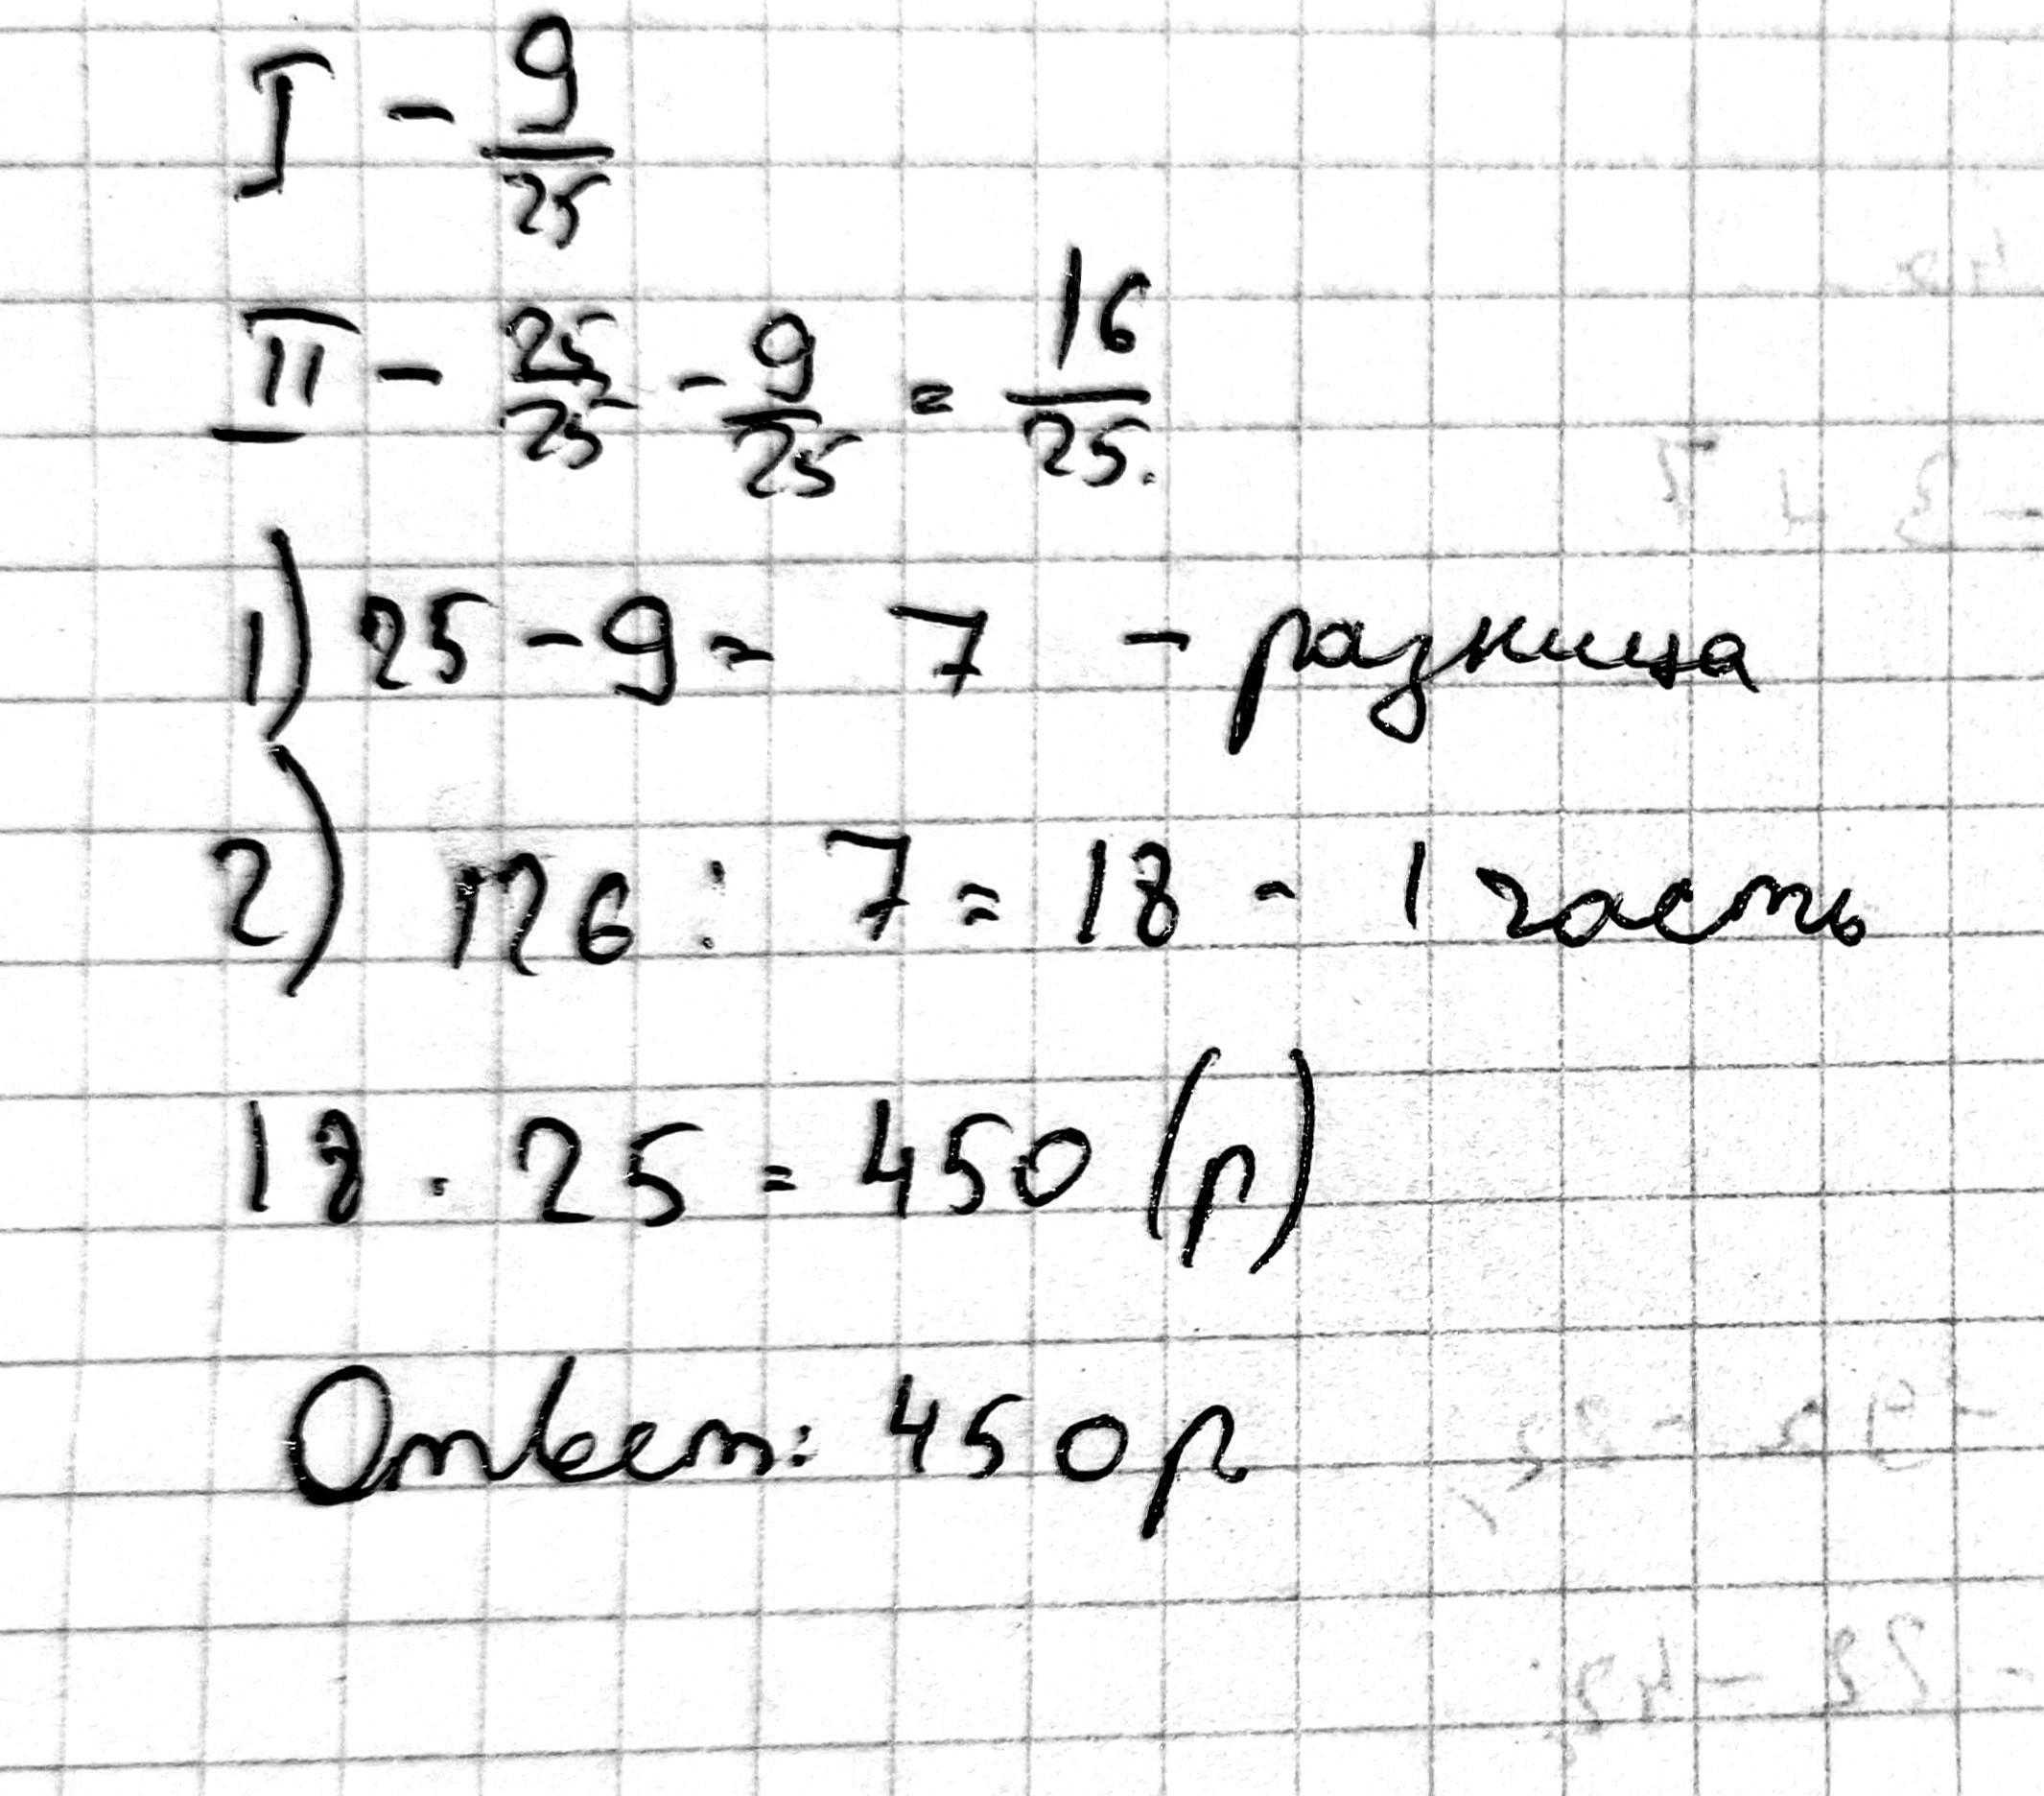 I - 9/25
II - 25/25 - 9/25 = 16/25.
1) 25 - 9 = 7 - разница
2) 126 : 7 = 18 - 1 часть
18 · 25 = 450 (р)
Ответ: 450 р